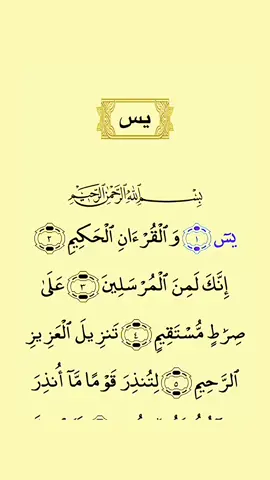 يس
بِسْمِ ٱللَّهِ ٱلرَّحْمَٰنِ ٱلرَّحِيمِ
يسٓ ١ وَٱلْقُرْءَانِ ٱلْحَكِيمِ ٢
إِنَّكَ لَمِنَ ٱلْمُرْسَلِينَ ٣ عَلَىٰ
صِرَٰطٍ مُّسْتَقِيمٍ ٤ تَنزِيلَ ٱلْعَزِيزِ
ٱلرَّحِيمِ ٥ لِتُنذِرَ قَوْمًا مَّآ أُنذِرَ